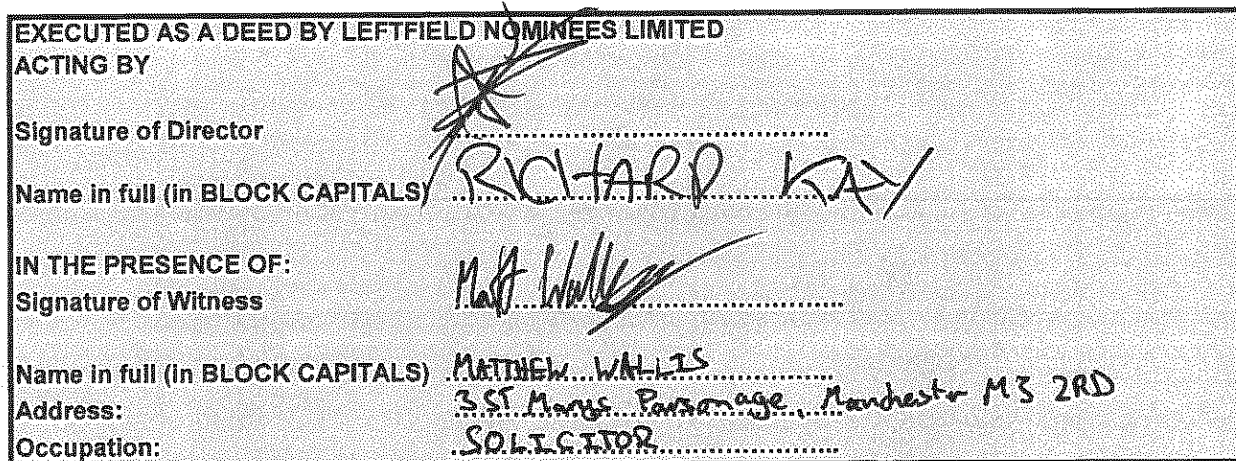 EXECUTED AS A DEED BY LEFTFIELD NOMINEES LIMITED
ACTING BY
Signature of Director
Name in full (in BLOCK CAPITALS) RICHARD KAY
IN THE PRESENCE OF:
Signature of Witness Matt Wallis
Name in full (in BLOCK CAPITALS) MATTHEW WALLIS
Address: 3 ST Marys Parsonage, Manchester M3 2RD
Occupation: SOLICITOR